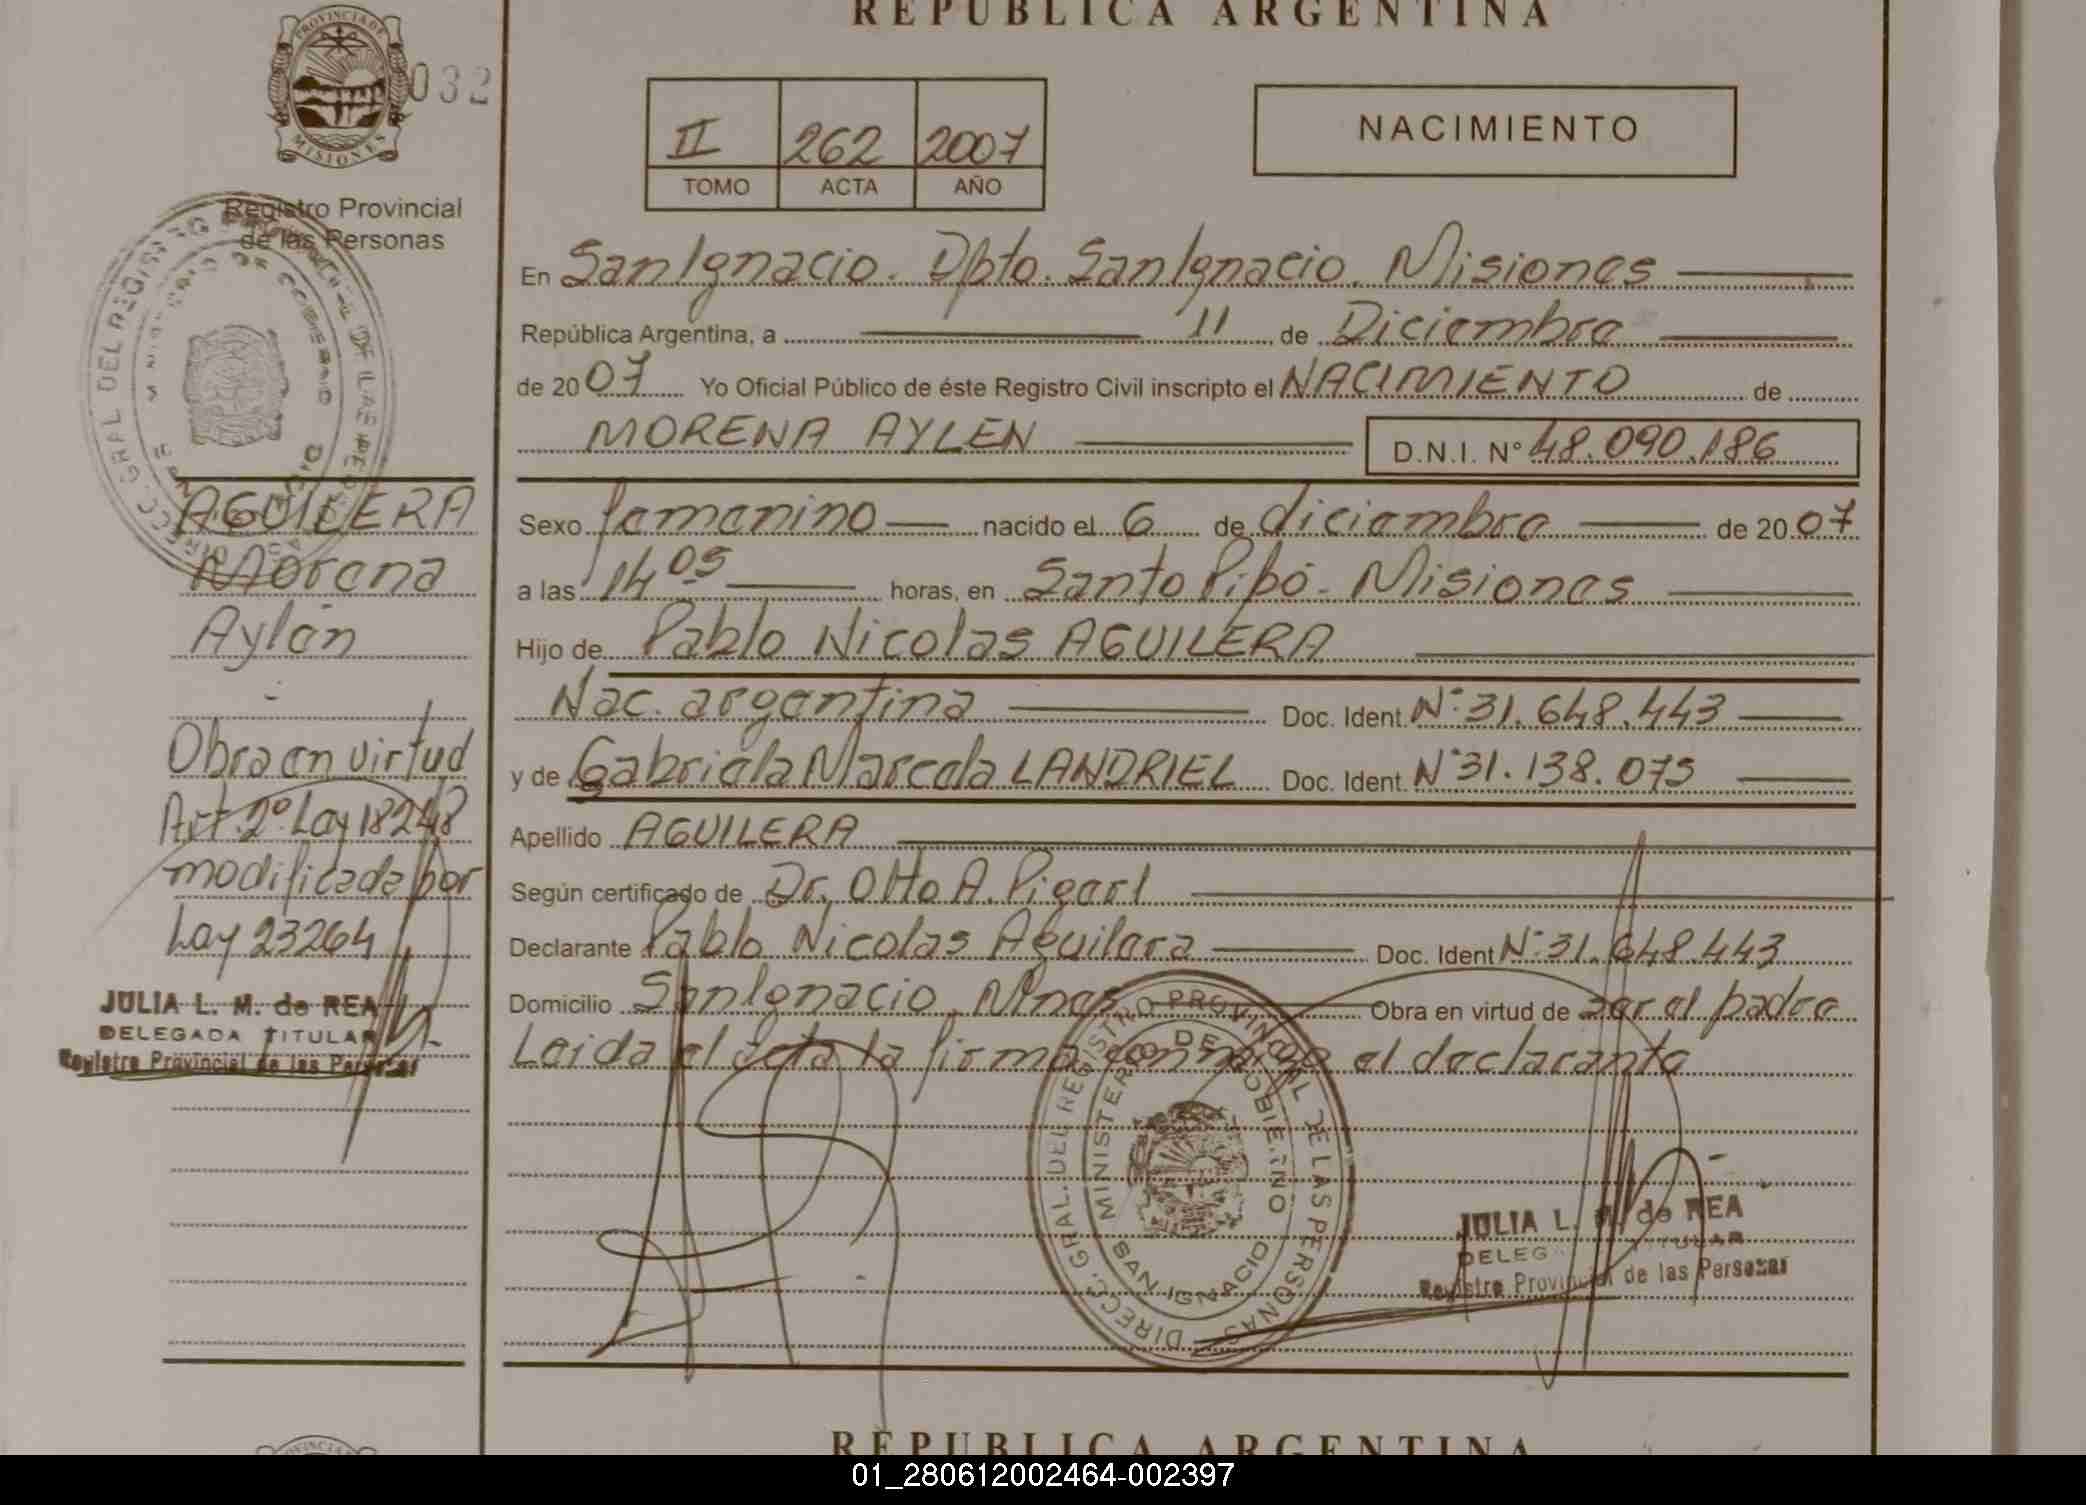 REPUBLICA ARGENTINA
PROVINCIA DE
MISIONES
032
Registro Provincial
de las Personas
II 262 2007
TOMO ACTA AÑO
NACIMIENTO
En San Ignacio. Dpto. San Ignacio. Misiones
República Argentina, a 11 de Diciembre
de 2007 Yo Oficial Público de éste Registro Civil inscripto el NACIMIENTO de
MORENA AYLEN D.N.I. N° 48.090.186
Sexo femenino nacido el 6 de diciembre de 2007
a las 14 05 horas, en Santo Pipó - Misiones
Hijo de Pablo Nicolas AGUILERA
Nac. argentina Doc. Ident. N° 31.648.443
y de Gabriela Marcela LANDRIEL Doc. Ident. N° 31.138.075
Apellido AGUILERA
Según certificado de Dr. Otto A.
Declarante Pablo Nicolas Aguilera Doc. Ident N° 31.648.443
Domicilio San Ignacio, Mnes Obra en virtud de ser el padre
Leida el acta la firma conmigo el declarante
AGUILERA
Morena
Aylén
Obra en virtud
Art. 2° Ley 18248
modificada por
Ley 23264
JULIA L. M. de REA
DELEGADA TITULAR
Registro Provincial de las Personas
DIRECC. GRAL. DEL REGISTRO PROVINCIAL DE LAS PERSONAS
MINISTERIO DE GOBIERNO
SAN IGNACIO
JULIA L. M. de REA
DELEG TITULAR
Registro Provincial de las Personas
REPUBLICA ARGENTINA
01_280612002464-002397